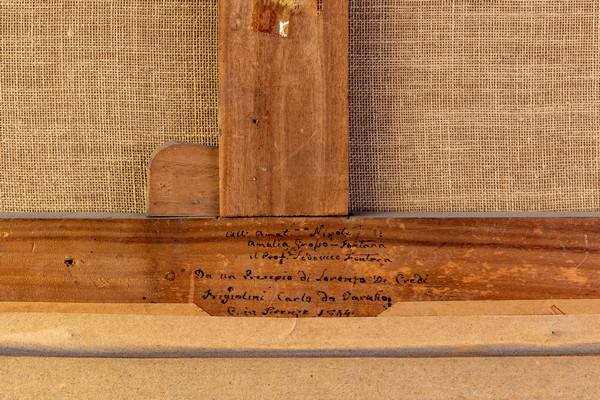 All' Amat. Nipote
Amalia Grosso-Fontana
il Prof. Federico Fontana
Da un Presepio di Lorenzo Di Credi
Frigiolini Carlo da Varallo
in Firenze